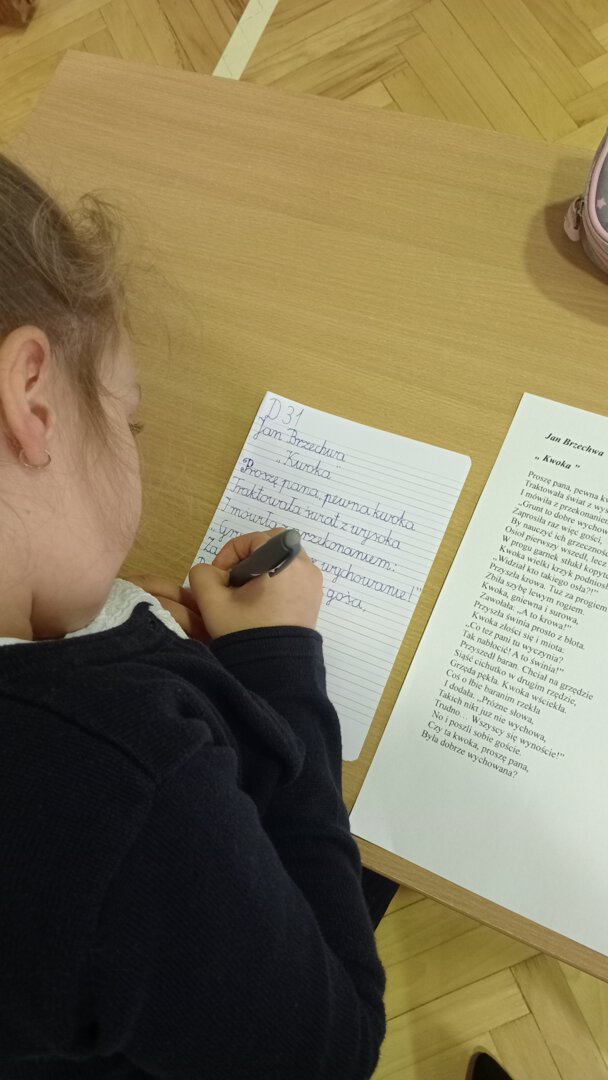 D 31
Jan Brzechwa
"Kwoka"
Proszę pana, pewna kwoka
Traktowała świat z wysoka
I mówiła z przekonaniem:
wychowanie!"
gości,
Jan Brzechwa
„ Kwoka ”
Proszę pana, pewna
Traktowała świat z
I mówiła z przekonaniem
„Grunt to dobre
Zaprosiła raz więc gości,
By nauczyć ich
Osioł pierwszy wszedł, lecz
W progu garnek stłukł
Kwoka wielki krzyk
„Widział kto takiego osła?!”
Przyszła krowa. Tuż za progiem
Zbiła szybę lewym rogiem.
Kwoka, gniewna i surowa,
Zawołała: „A to krowa!”
Przyszła świnia prosto z błota.
Kwoka złości się i miota:
„Co też pani tu wyczynia?
Tak nabłocić! A to świnia!”
Przyszedł baran. Chciał na grzędzie
Siąść cichutko w drugim rzędzie,
Grzęda pękła. Kwoka wściekła
Coś o łbie baranim rzekła
I dodała: „Próżne słowa,
Takich nikt już nie wychowa,
Trudno... Wszyscy się wynoście!”
No i poszli sobie goście.
Czy ta kwoka, proszę pana,
Była dobrze wychowana?